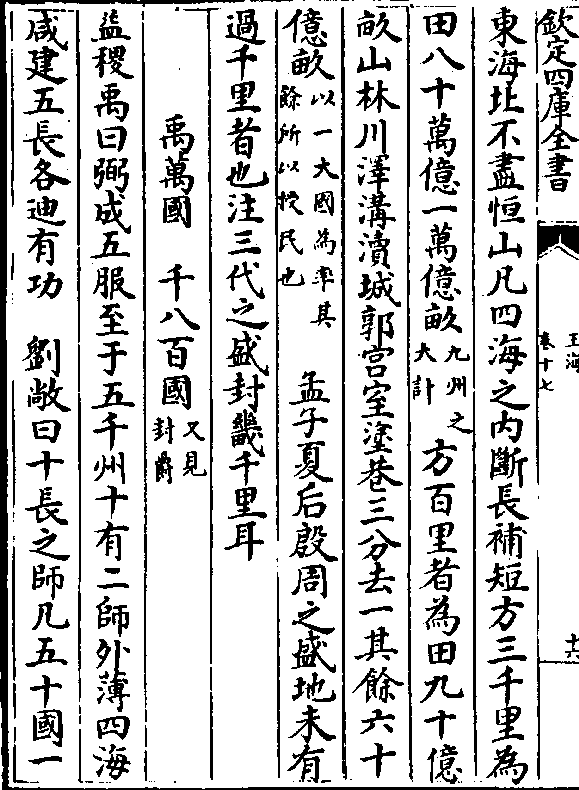 欽定四庫全書
玉海
卷十七
十六
東海北不盡恒山凡四海之内斷長補短方三千里為
田八十萬億一萬億畝九州之大計方百里者為田九十億
畝山林川澤溝瀆城郭宫室塗巷三分去一其餘六十
億畝以一大國為率其餘所以授民也孟子夏后殷周之盛地未有
過千里者也注三代之盛封畿千里耳
禹萬國 千八百國又見封爵
益稷禹曰弼成五服至于五千州十有二師外薄四海
咸建五長各迪有功 劉敞曰十長之師凡五十國一